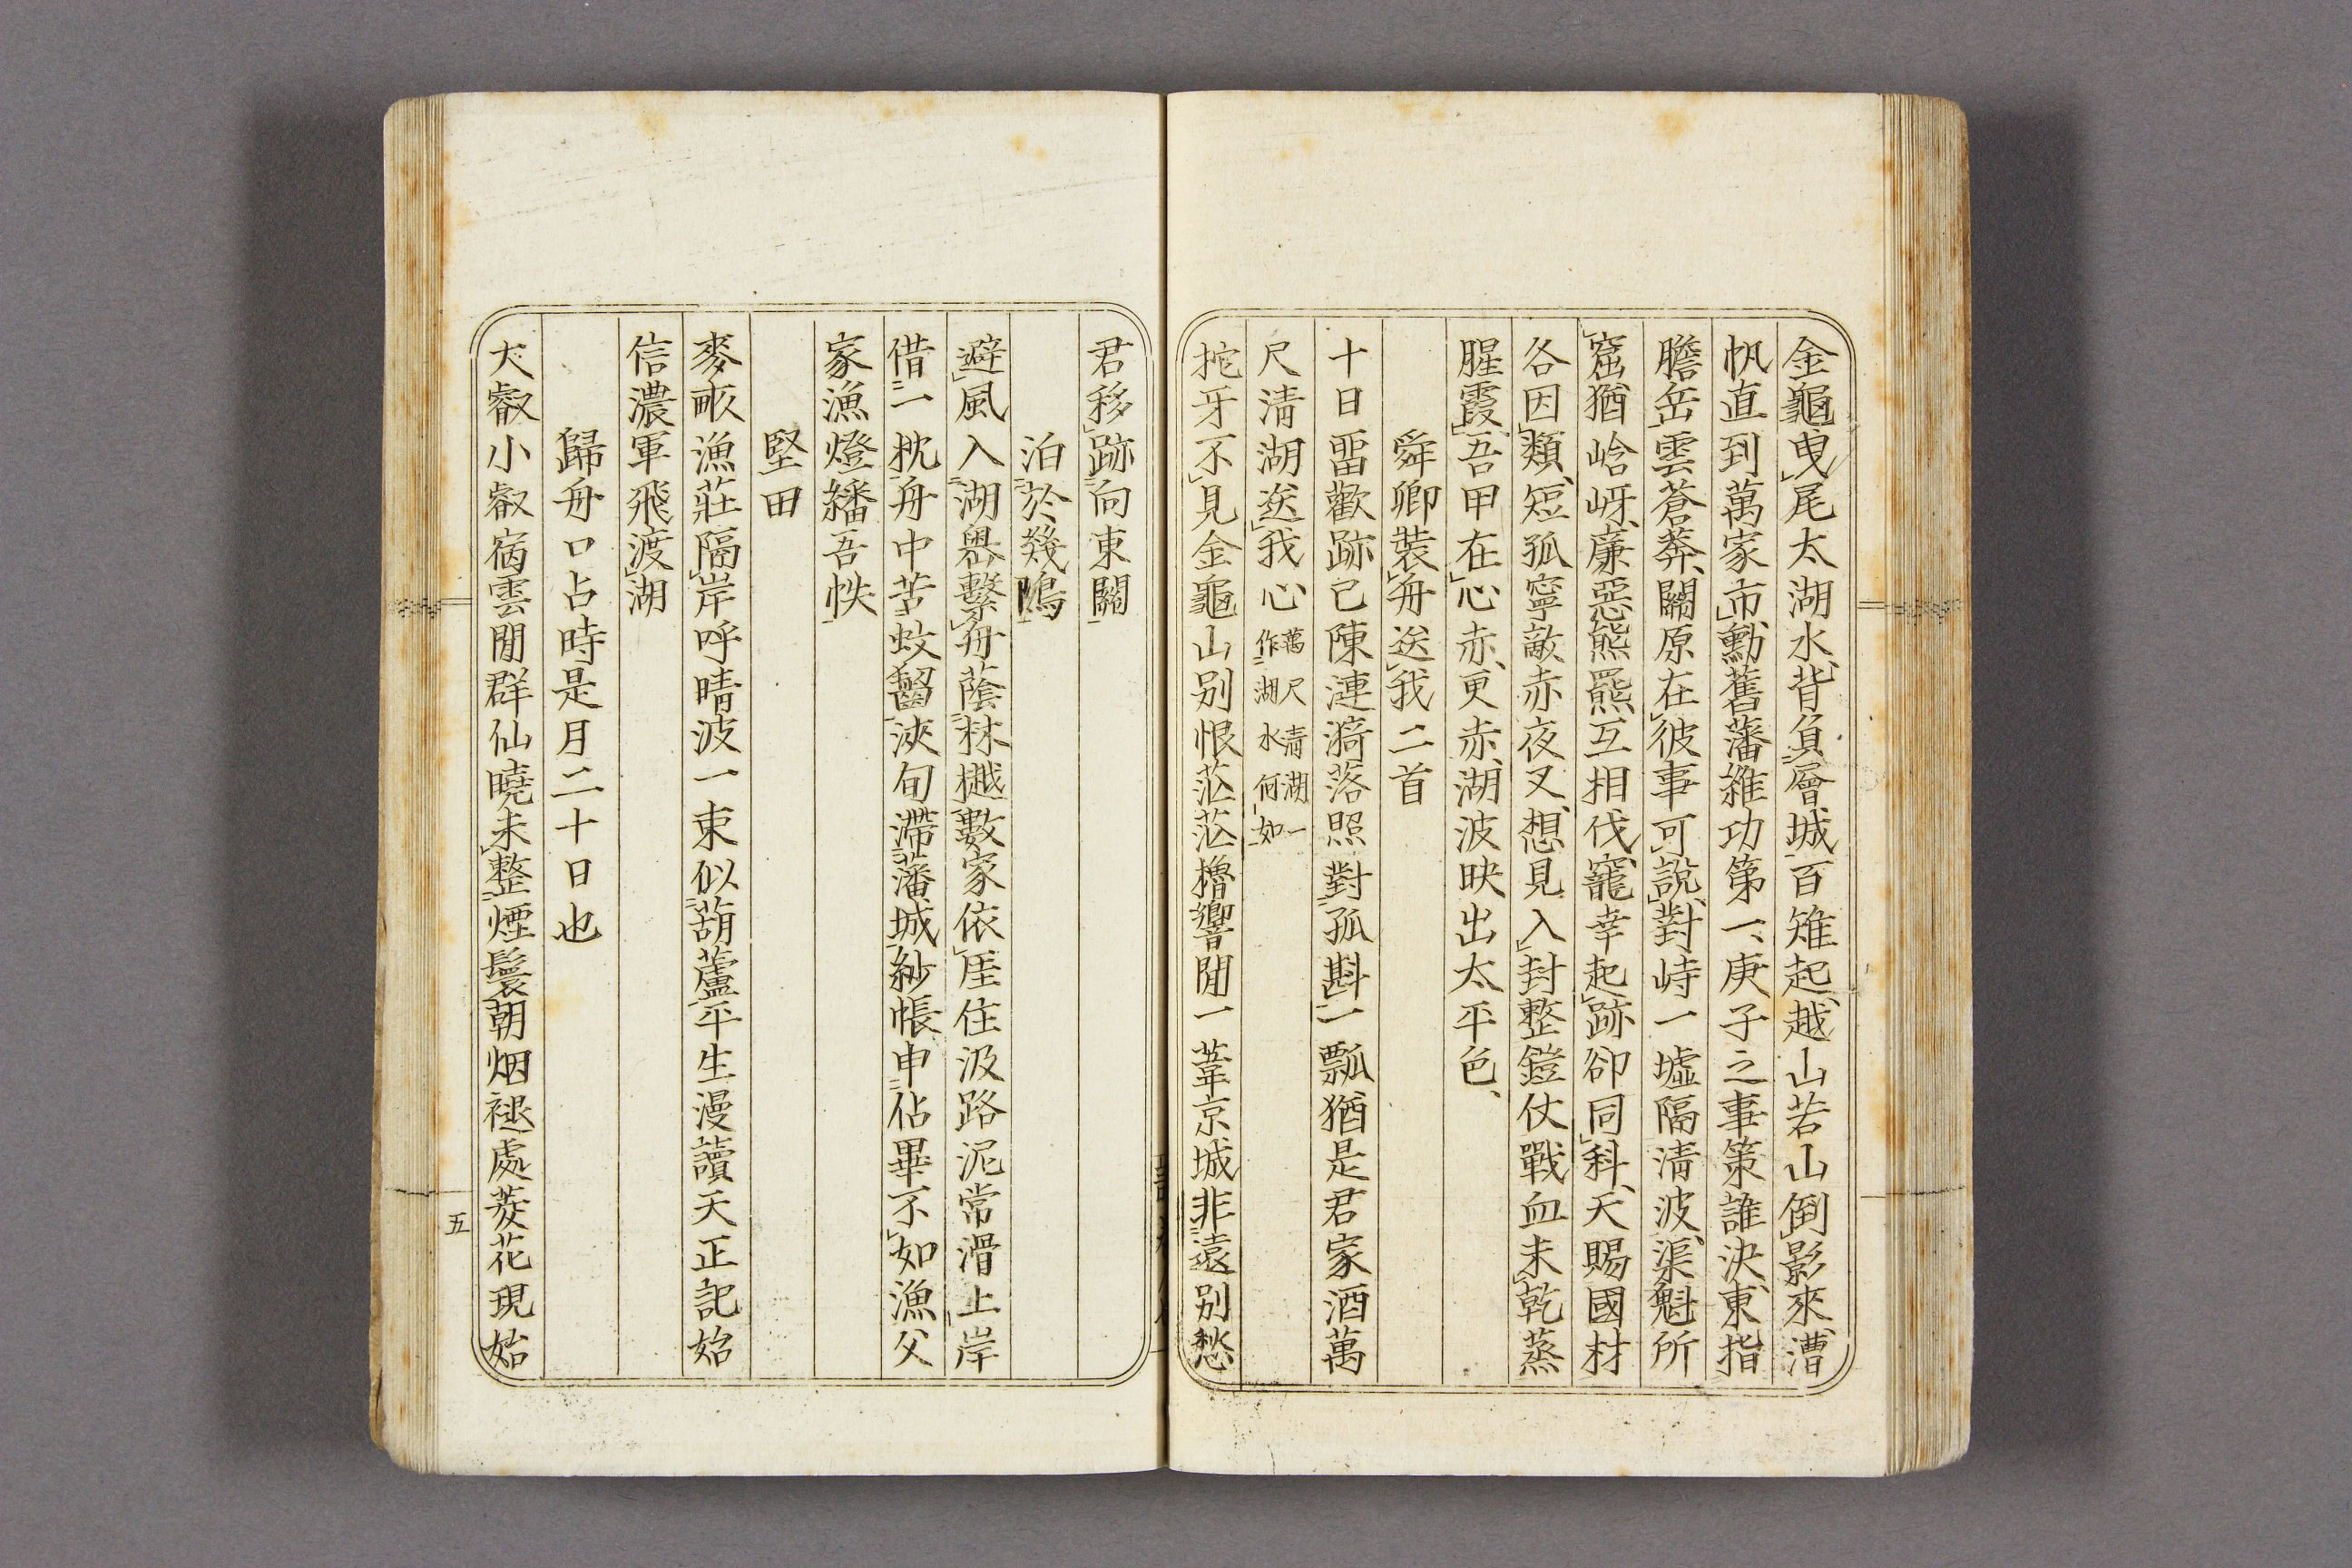 金龜曳尾太湖水、背負層城百雉起、越山若山倒影來、漕
帆直到萬家市、勳舊藩維功第一、庚子之事策誰決、東指
膽岳雲蒼莽、關原在彼事可說、對峙一墟隔清波、渠魁所
窟猶崯岈、廉惡熊羆互相伐、竄幸起跡卻同科、天賜國材
各因類、短孤寧敵赤夜叉、想見入封整鎧仗戰血未乾蒸
腥霞、吾甲在心赤、更赤、湖波映出太平色、
舜卿裝舟送我二首
十日畱歡跡已陳漣漪落照對孤斟一瓢猶是君家酒萬
尺淸湖送我心萬尺淸湖一作湖水何如
拕牙不見金龜山別恨茫茫櫓響閒一葦京城非遠別愁
君移跡向東關
泊於幾嶋
避風入湖嶴繫舟蔭林樾數家依厓住汲路泥常滑上岸
借一枕舟中苦蚊齧浹旬滯藩城紗帳申佔畢不如漁父
家漁燈繙吾帙
堅田
麥畝漁莊隔岸呼晴波一束似葫蘆平生漫讀天正記始
信濃軍飛渡湖
歸舟口占時是月二十日也
大叡小叡宿雲閒群仙曉未整煙鬟朝烟褪處菱花現始
五